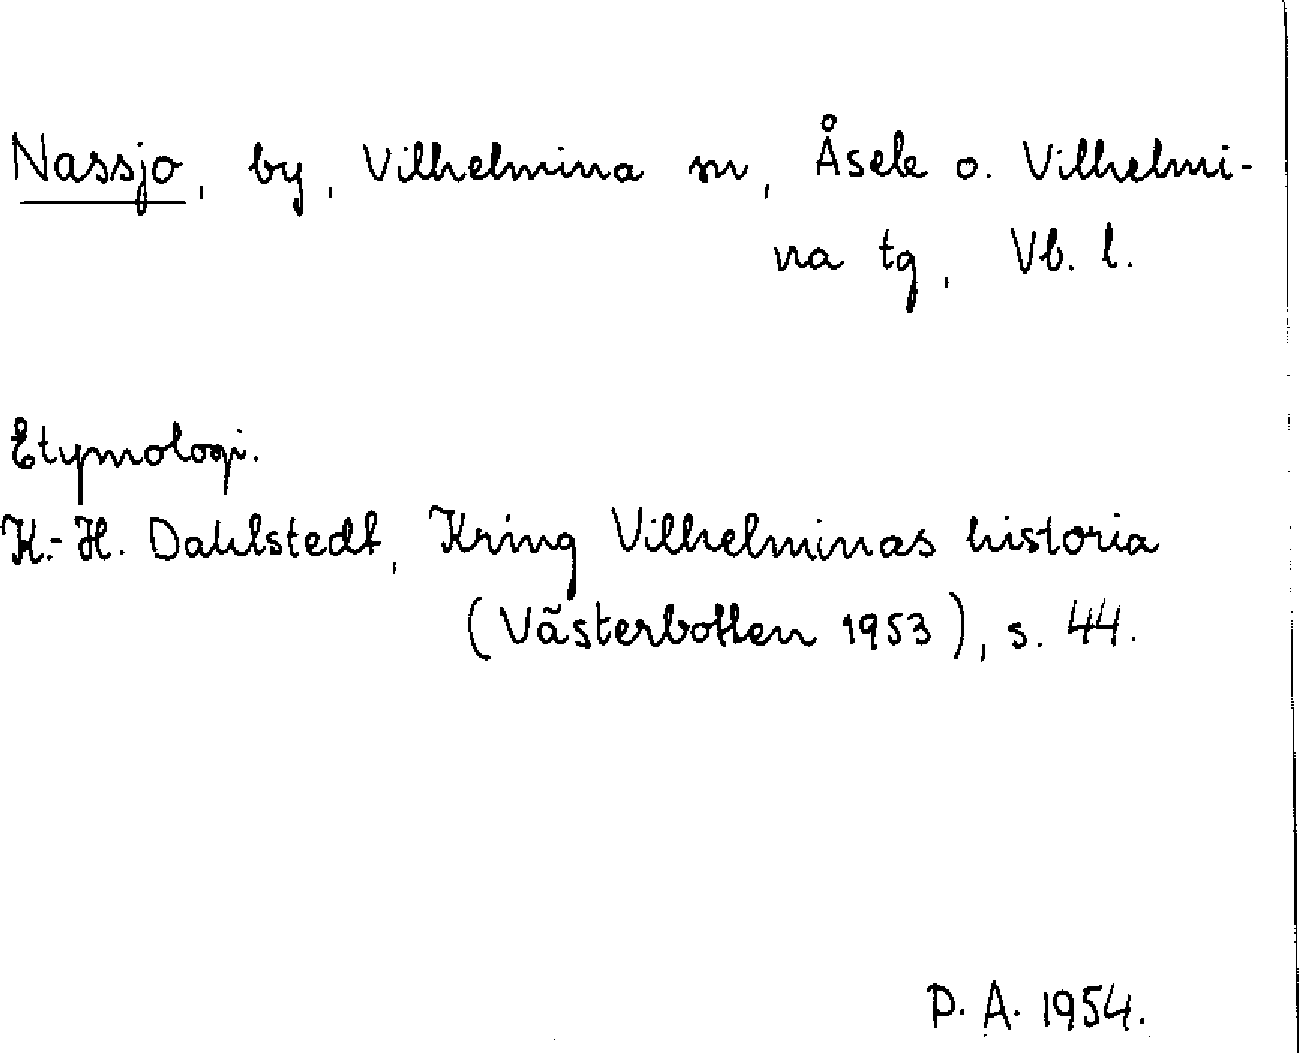 Nassjo, by, Vilhelmina sn, Åsele o. Vilhelmi-
na tg, Vb. l.
Etymologi.
K.-H. Dahlstedt, Kring Vilhelminas historia
(Västerbotten 1953), s. 44.
P. A. 1954.